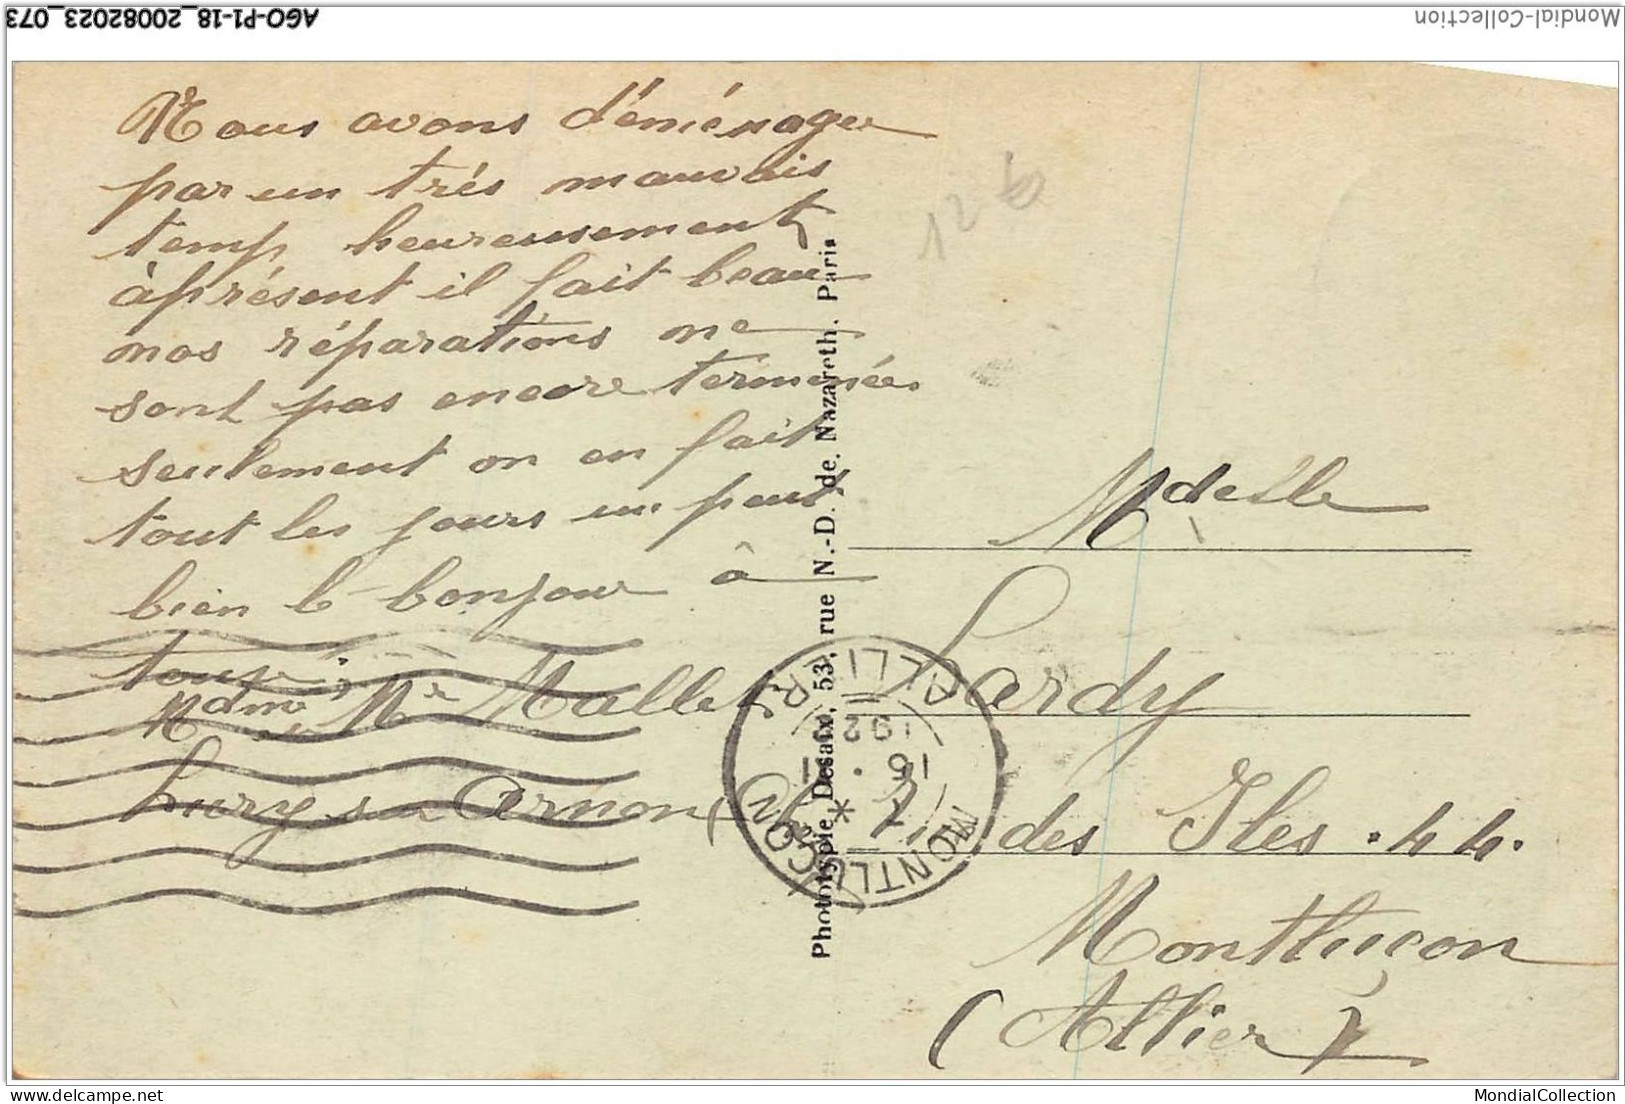 AGO-P1-18_20082023_073
Mondial-Collection
Nous avons d'éménager
par un trés mauvais
temp heureusement
àprésent il fait beau
nos réparations ne
sont pas encore terminées
seulement on en fait
tout les jours un peut
bien le bonjour à
tous
Mdme Mr Mallet
Lury sur Arnon
Phototypie Desaix, 53, rue N.-D. de. Nazareth. Paris
12
MONTLUÇON
ALLIER
16
192
Mdelle
Lardy
des Iles. 44.
Montluçon
(Allier)
delcampe.net
MondialCollection